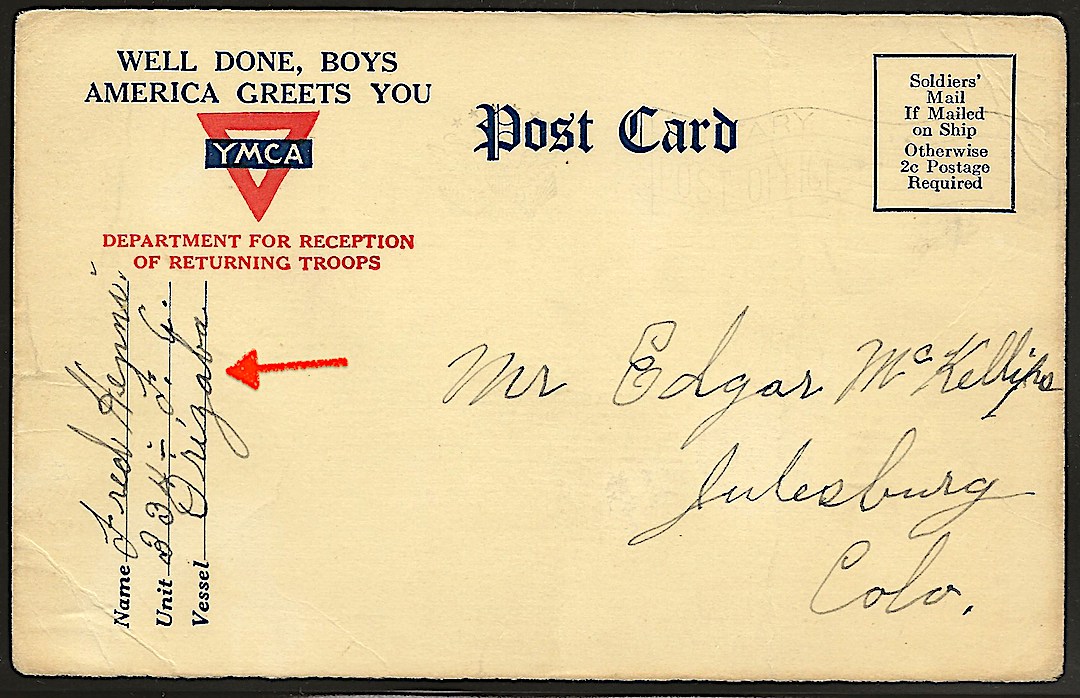 WELL DONE, BOYS
AMERICA GREETS YOU
YMCA
DEPARTMENT FOR RECEPTION
OF RETURNING TROOPS
Post Card
Soldiers'
Mail
If Mailed
on Ship
Otherwise
2c Postage
Required
Name Fred
Unit
Vessel Orizaba
Mr Edgar McKellips
Julesburg
Colo.